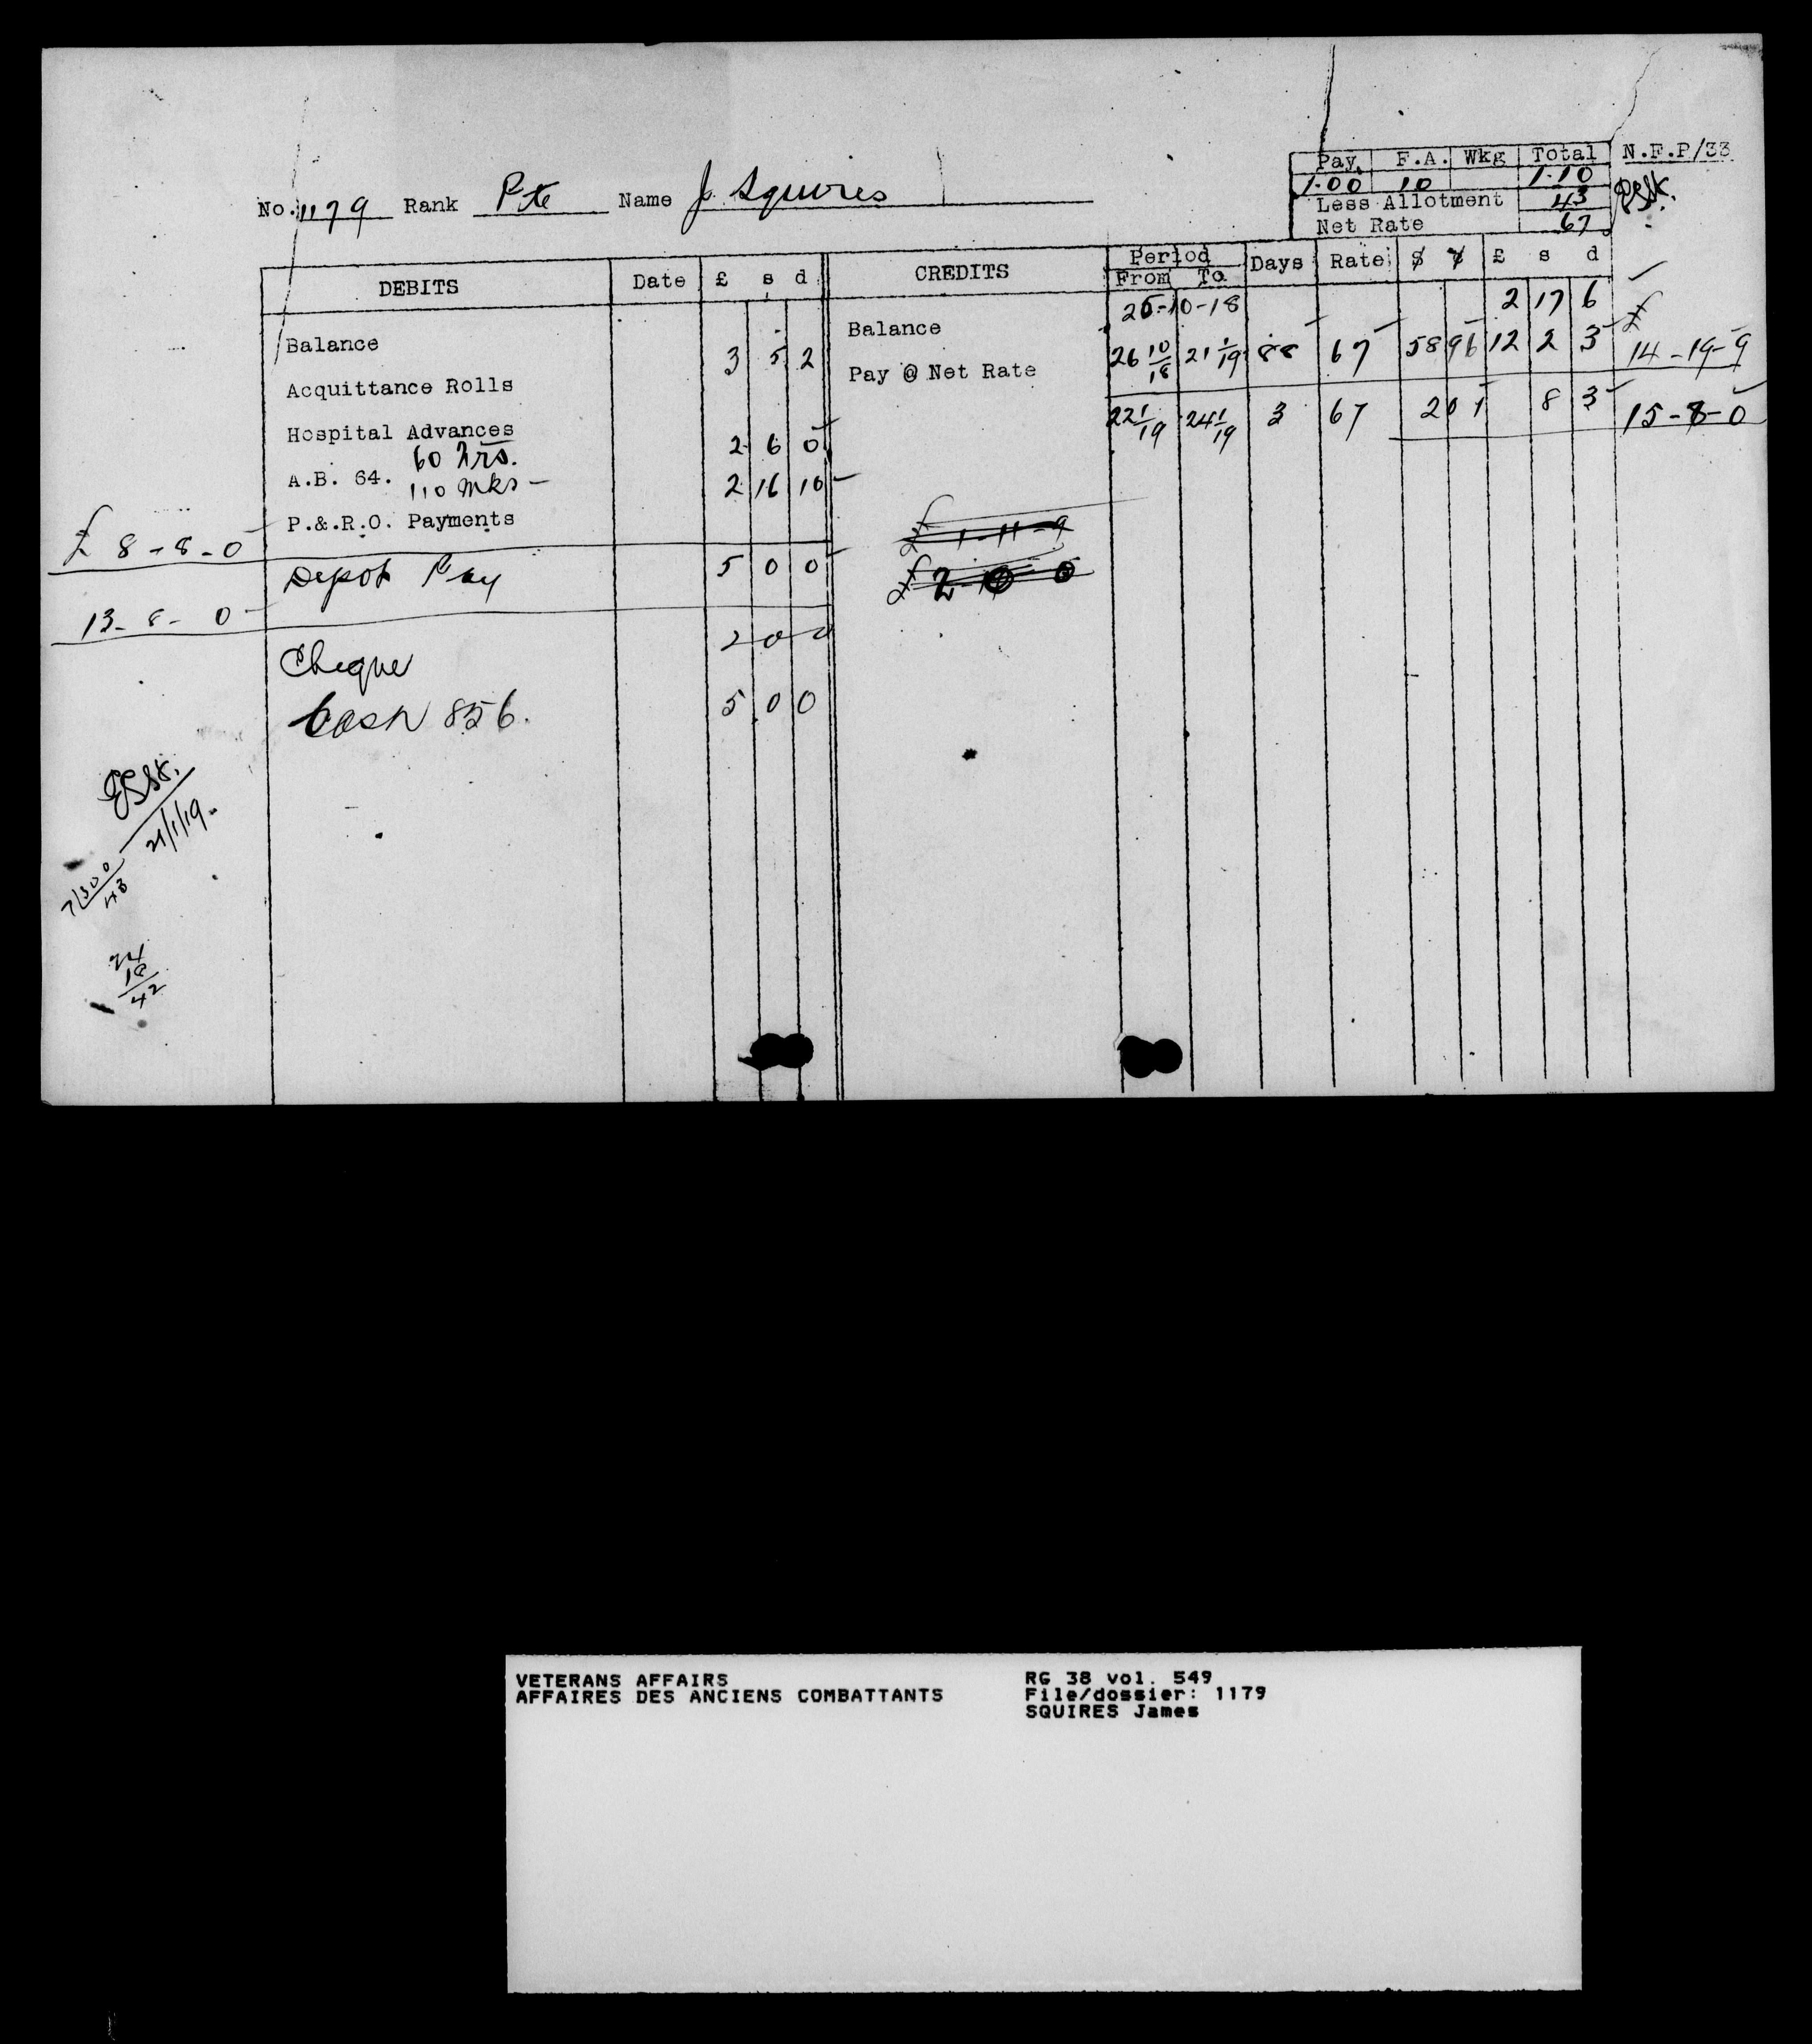 N.F.P/33
Pay. F.A. Wkg Total
1.00 10 1.10
Less Allotment 43
Net Rate 67
No. 1179 Rank Pte Name J. Squires
DEBITS Date £ s d CREDITS Period From To Days Rate $ ¢ £ s d
Balance 25-10-18 2 17 6
Balance
Acquittance Rolls 3 5 2
Pay @ Net Rate 26 10/18 21 1/19 88 67 58 96 12 2 3 £ 14-19-9
22 1/19 24 1/19 3 67 2 01 8 3 15-8-0
Hospital Advances
60 Frs. 2 6 0
A.B. 64. 110 Mks - 2 16 10
P.&.R.O. Payments
£ 8-8-0
£ 1-11-9
Depot Pay 5 0 0
£ 2 0 0
13-8-0
Cheque 2 0 0
Cash 856. 5 0 0
21/1/19.
7/300
43
24
18
42
VETERANS AFFAIRS
AFFAIRES DES ANCIENS COMBATTANTS
RG 38 vol. 549
File/dossier: 1179
SQUIRES James